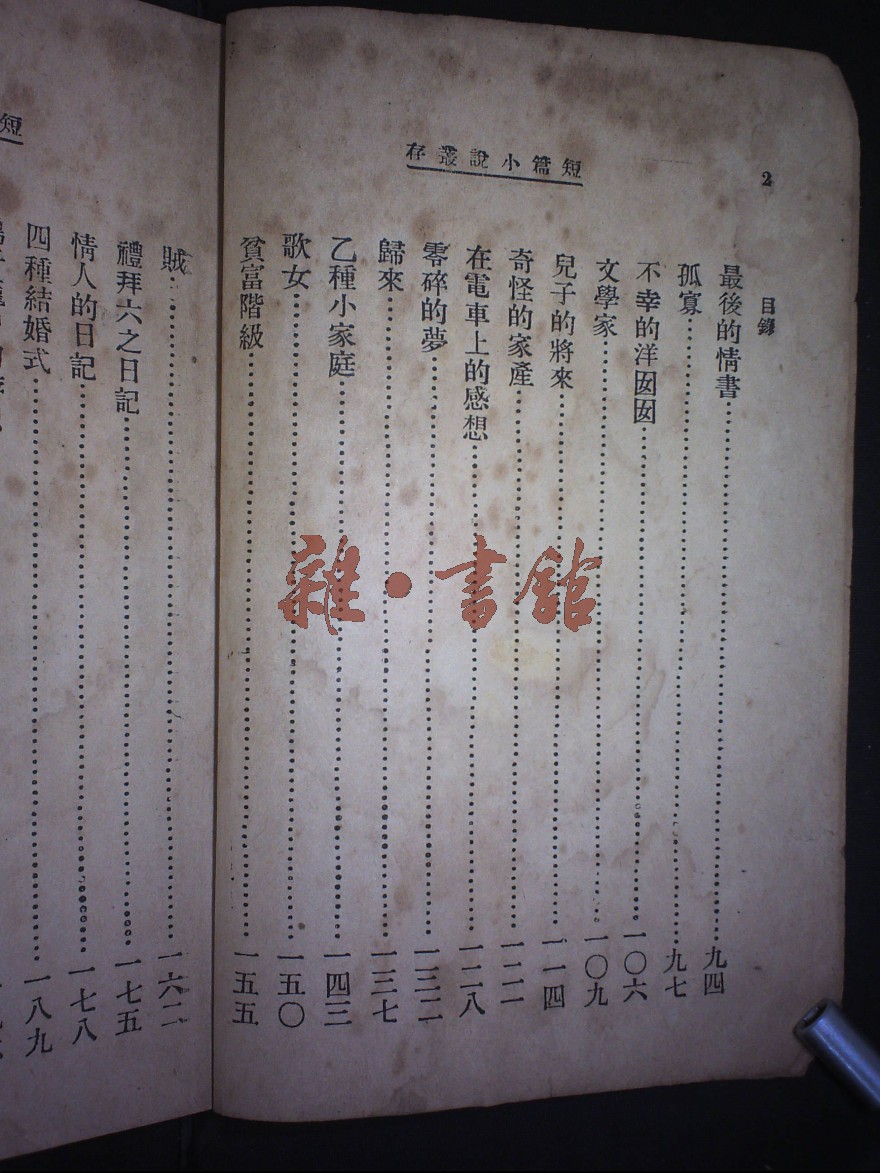 2
短篇小說叢存
目錄
最後的情書……九四
孤寡……九七
不幸的洋囡囡……一〇六
文學家……一〇九
兒子的將來……一一四
奇怪的家產……一二二
在電車上的感想……一二八
零碎的夢……一三二
歸來……一三七
乙種小家庭……一四三
歌女……一五〇
貧富階級……一五五
短
賊……一六二
禮拜六之日記……一七五
情人的日記……一七八
四種結婚式……一八九
雜·書館